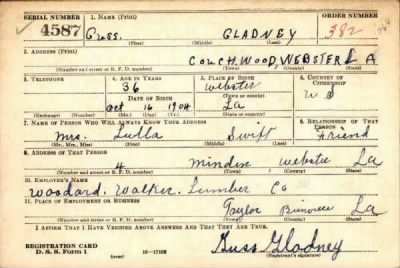 SERIAL NUMBER 1. NAME (Print) ORDER NUMBER
4587 Guss. GLADNEY 382
(First) (Middle) (Last)
2. ADDRESS (Print)
COUCHWOOD, WEBSTER LA
(Number and street or R. F. D. number) (Town) (County) (State)
3. TELEPHONE 4. AGE IN YEARS 5. PLACE OF BIRTH 6. COUNTRY OF CITIZENSHIP
36 Webster
DATE OF BIRTH (Town or county)
Oct 16 1904 La U S
(Exchange) (Number) (Mo.) (Day) (Yr.) (State or country)
7. NAME OF PERSON WHO WILL ALWAYS KNOW YOUR ADDRESS 8. RELATIONSHIP OF THAT PERSON
Mrs. Lulla Swift Friend
(Mr., Mrs., Miss) (First) (Middle) (Last)
9. ADDRESS OF THAT PERSON
4 Minden Webster La
(Number and street or R. F. D. number) (Town) (County) (State)
10. EMPLOYER'S NAME
Woodard. Walker. Lumber Co
11. PLACE OF EMPLOYMENT OR BUSINESS
Taylor La
(Number and street or R. F. D. number) (Town) (County) (State)
I AFFIRM THAT I HAVE VERIFIED ABOVE ANSWERS AND THAT THEY ARE TRUE.
REGISTRATION CARD
D. S. S. Form 1 (over) Guss Gladney
(Registrant's signature)